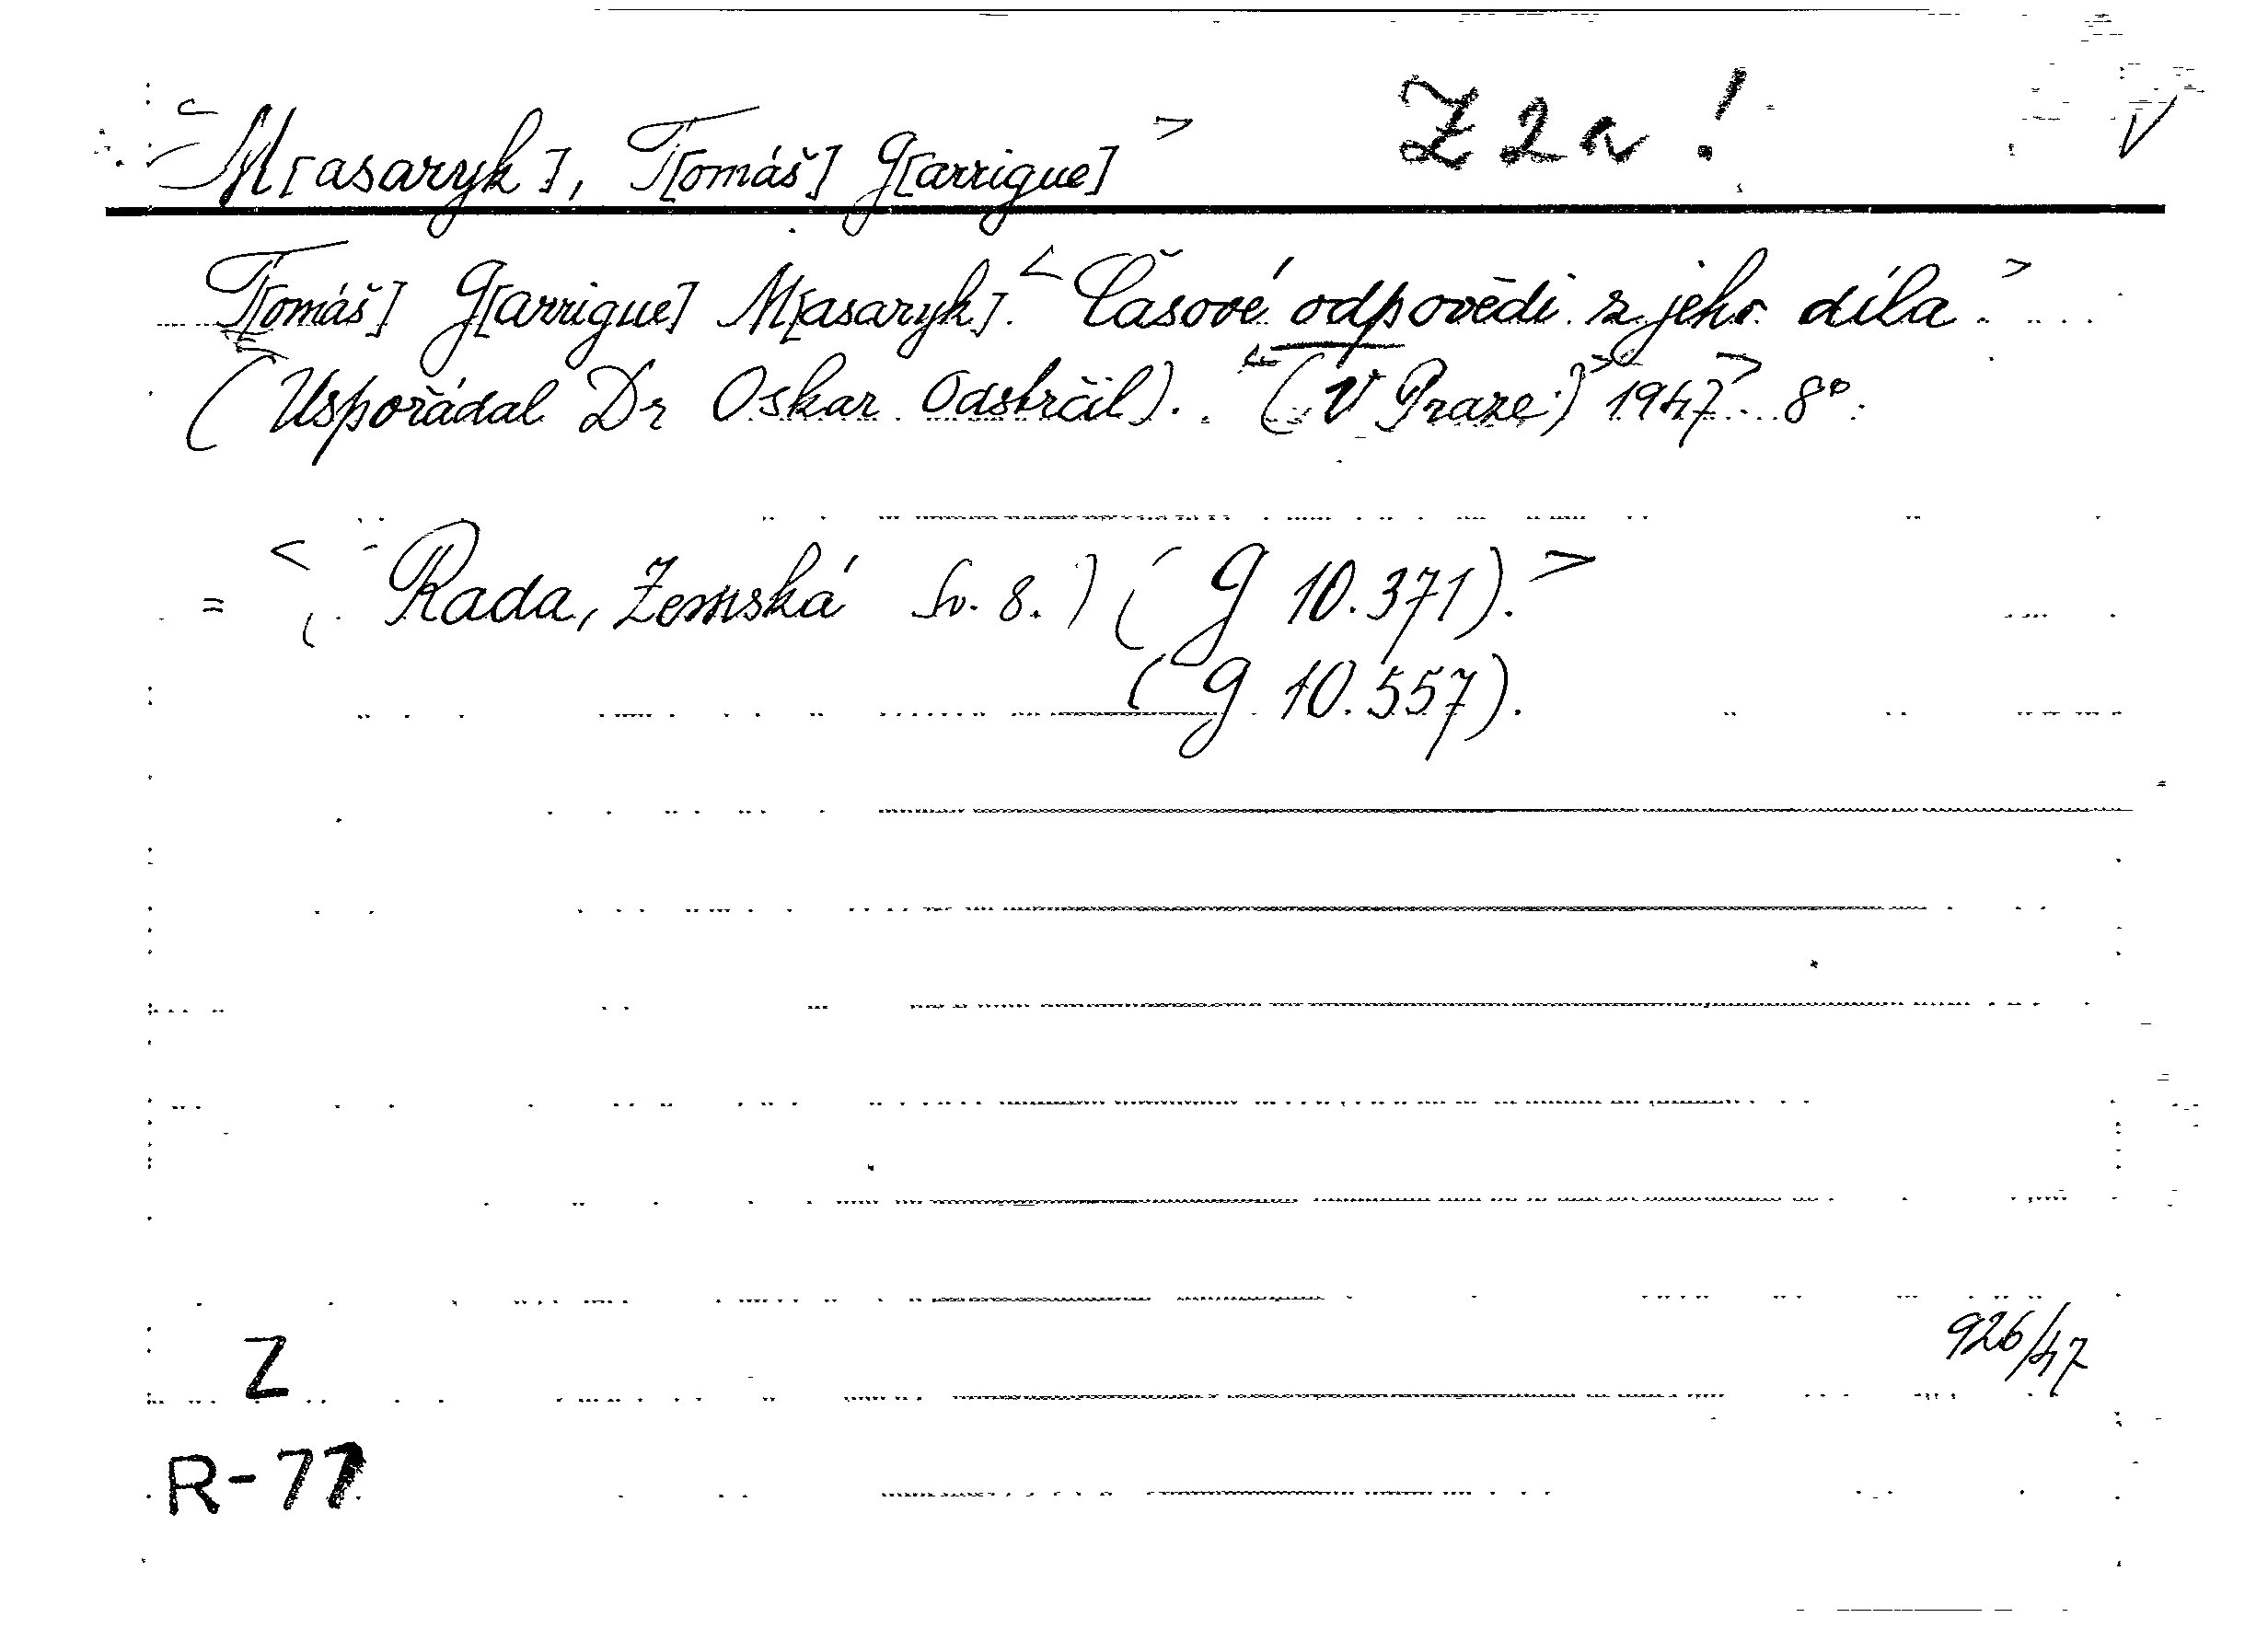 <M[asaryk], T[omáš] G[arrigue]> Z 2 a ! V
T[omáš] G[arrigue] M[asaryk]. <Časové odpovědi z jeho díla.>
(Uspořádal Dr Oskar Odstrčil). (V Praze) 1947. 8°.
= <(Rada, Zemská Sv. 8.) (G 10.371).>
(G 10.557).
926/47
Z
R-77